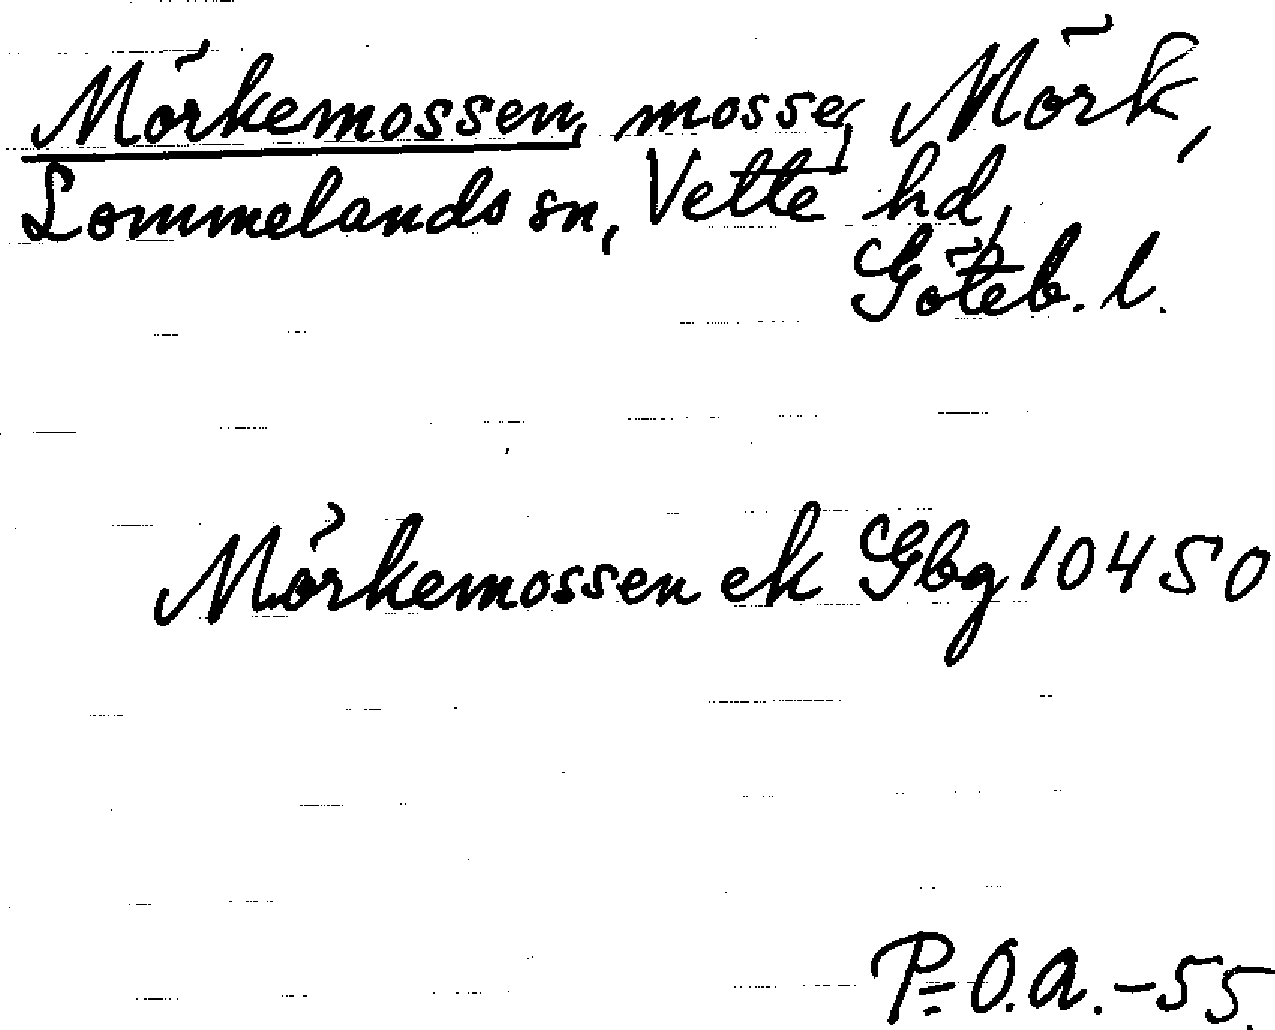 Mörkemossen, mosse, Mörk,
Lommelands sn, Vette hd,
Göteb. l.
Mörkemossen ek Gbg 10450
P-O.A.-55.